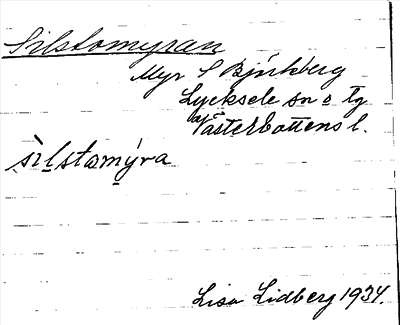 Silstomyran
Myr S Björkberg
Lycksele sn o tg
av Västerbottens l.
silstomýra
Lisa Lidberg 1934.